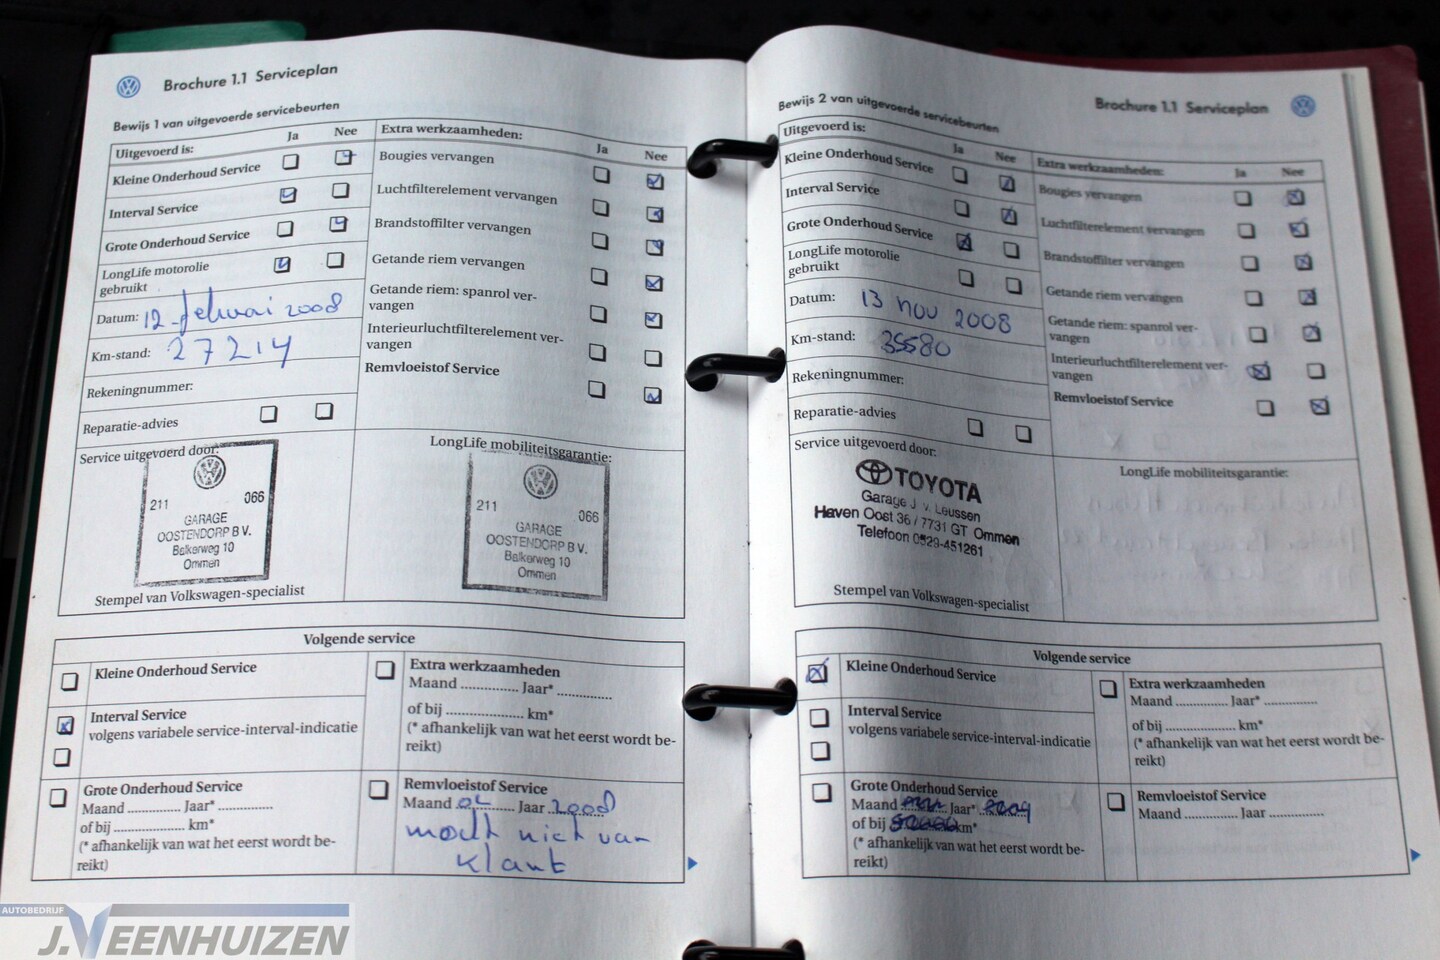 Brochure 1.1 Serviceplan
Bewijs 1 van uitgevoerde servicebeurten
Uitgevoerd is:
Ja
Nee
Kleine Onderhoud Service
Interval Service
Grote Onderhoud Service
LongLife motorolie
gebruikt
Datum: 12 februai 2008
Km-stand: 27214
Rekeningnummer:
Reparatie-advies
Extra werkzaamheden:
Ja
Nee
Bougies vervangen
Luchtfilterelement vervangen
Brandstoffilter vervangen
Getande riem vervangen
Getande riem: spanrol ver-
vangen
Interieurluchtfilterelement ver-
vangen
Remvloeistof Service
Service uitgevoerd door:
211 066
GARAGE
OOSTENDORP B V.
Balkerweg 10
Ommen
Stempel van Volkswagen-specialist
LongLife mobiliteitsgarantie:
211 066
GARAGE
OOSTENDORP B V.
Balkerweg 10
Ommen
Volgende service
Kleine Onderhoud Service
Interval Service
volgens variabele service-interval-indicatie
Grote Onderhoud Service
Maand .............. Jaar* ..............
of bij .................. km*
(* afhankelijk van wat het eerst wordt be-
reikt)
Extra werkzaamheden
Maand .............. Jaar* ..............
of bij .................. km*
(* afhankelijk van wat het eerst wordt be-
reikt)
Remvloeistof Service
Maand 02 Jaar 2008
mocht niet van
klant
Bewijs 2 van uitgevoerde servicebeurten
Brochure 1.1 Serviceplan
Uitgevoerd is:
Ja
Nee
Kleine Onderhoud Service
Interval Service
Grote Onderhoud Service
LongLife motorolie
gebruikt
Datum: 13 nov 2008
Km-stand: 35580
Rekeningnummer:
Reparatie-advies
Extra werkzaamheden:
Ja
Nee
Bougies vervangen
Luchtfilterelement vervangen
Brandstoffilter vervangen
Getande riem vervangen
Getande riem: spanrol ver-
vangen
Interieurluchtfilterelement ver-
vangen
Remvloeistof Service
Service uitgevoerd door:
TOYOTA
Garage J v. Leussen
Haven Oost 36 / 7731 GT Ommen
Telefoon 0529-451261
Stempel van Volkswagen-specialist
LongLife mobiliteitsgarantie:
Volgende service
Kleine Onderhoud Service
Interval Service
volgens variabele service-interval-indicatie
Grote Onderhoud Service
Maand Jaar*
of bij km*
(* afhankelijk van wat het eerst wordt be-
reikt)
Extra werkzaamheden
Maand .............. Jaar* ..............
of bij .................. km*
(* afhankelijk van wat het eerst wordt be-
reikt)
Remvloeistof Service
Maand .............. Jaar ..............
AUTOBEDRIJF
J.VEENHUIZEN